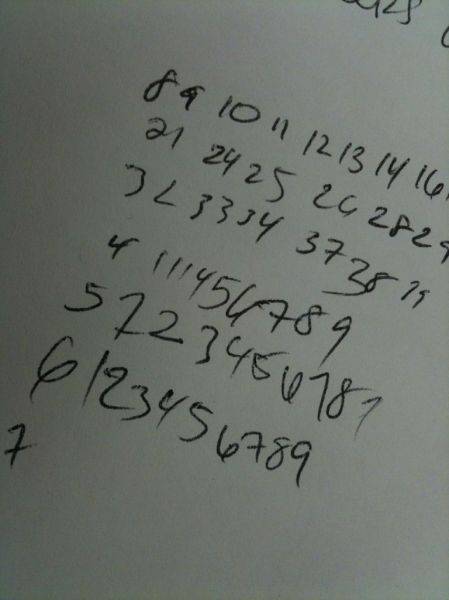 8 9 10 11 12 13 14 16
21 24 25 26 28 29
32 33 34 37 38 39
4 1 1 1 4 5 6 7 8 9
5 1 2 2 3 4 5 6 7 8 9
6 1 2 3 4 5 6 7 8 9
7